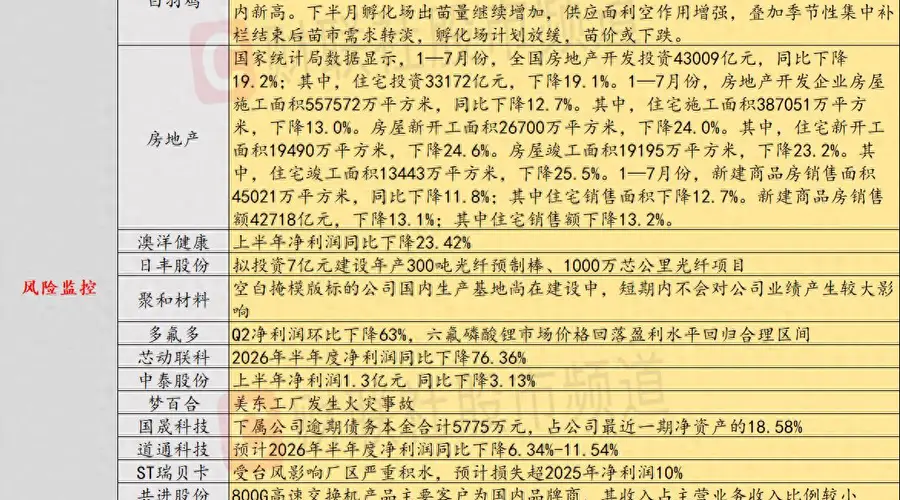 白羽鸡
内新高。下半月孵化场出苗量继续增加，供应面利空作用增强，叠加季节性集中补
栏结束后苗市需求转淡，孵化场计划放缓，苗价或下跌。
房地产
国家统计局数据显示，1—7月份，全国房地产开发投资43009亿元，同比下降
19.2%；其中，住宅投资33172亿元，下降19.1%。1—7月份，房地产开发企业房屋
施工面积557572万平方米，同比下降12.7%。其中，住宅施工面积387051万平方
米，下降13.0%。房屋新开工面积26700万平方米，下降24.0%。其中，住宅新开工
面积19490万平方米，下降24.6%。房屋竣工面积19195万平方米，下降23.2%。其
中，住宅竣工面积13443万平方米，下降25.5%。1—7月份，新建商品房销售面积
45021万平方米，同比下降11.8%；其中住宅销售面积下降12.7%。新建商品房销售
额42718亿元，下降13.1%；其中住宅销售额下降13.2%。
风险监控
澳洋健康
上半年净利润同比下降23.42%
日丰股份
拟投资7亿元建设年产300吨光纤预制棒、1000万芯公里光纤项目
聚和材料
空白掩模版标的公司国内生产基地尚在建设中，短期内不会对公司业绩产生较大影
响
多氟多
Q2净利润环比下降63%，六氟磷酸锂市场价格回落盈利水平回归合理区间
芯动联科
2026年半年度净利润同比下降76.36%
中泰股份
上半年净利润1.3亿元 同比下降3.13%
梦百合
美东工厂发生火灾事故
国晟科技
下属公司逾期债务本金合计5775万元，占公司最近一期净资产的18.58%
道通科技
预计2026年半年度净利润同比下降6.34%-11.54%
ST瑞贝卡
受台风影响厂区严重积水，预计损失超2025年净利润10%
共进股份
800G高速交换机产品主要客户为国内品牌商，其收入占主营业务收入比例较小